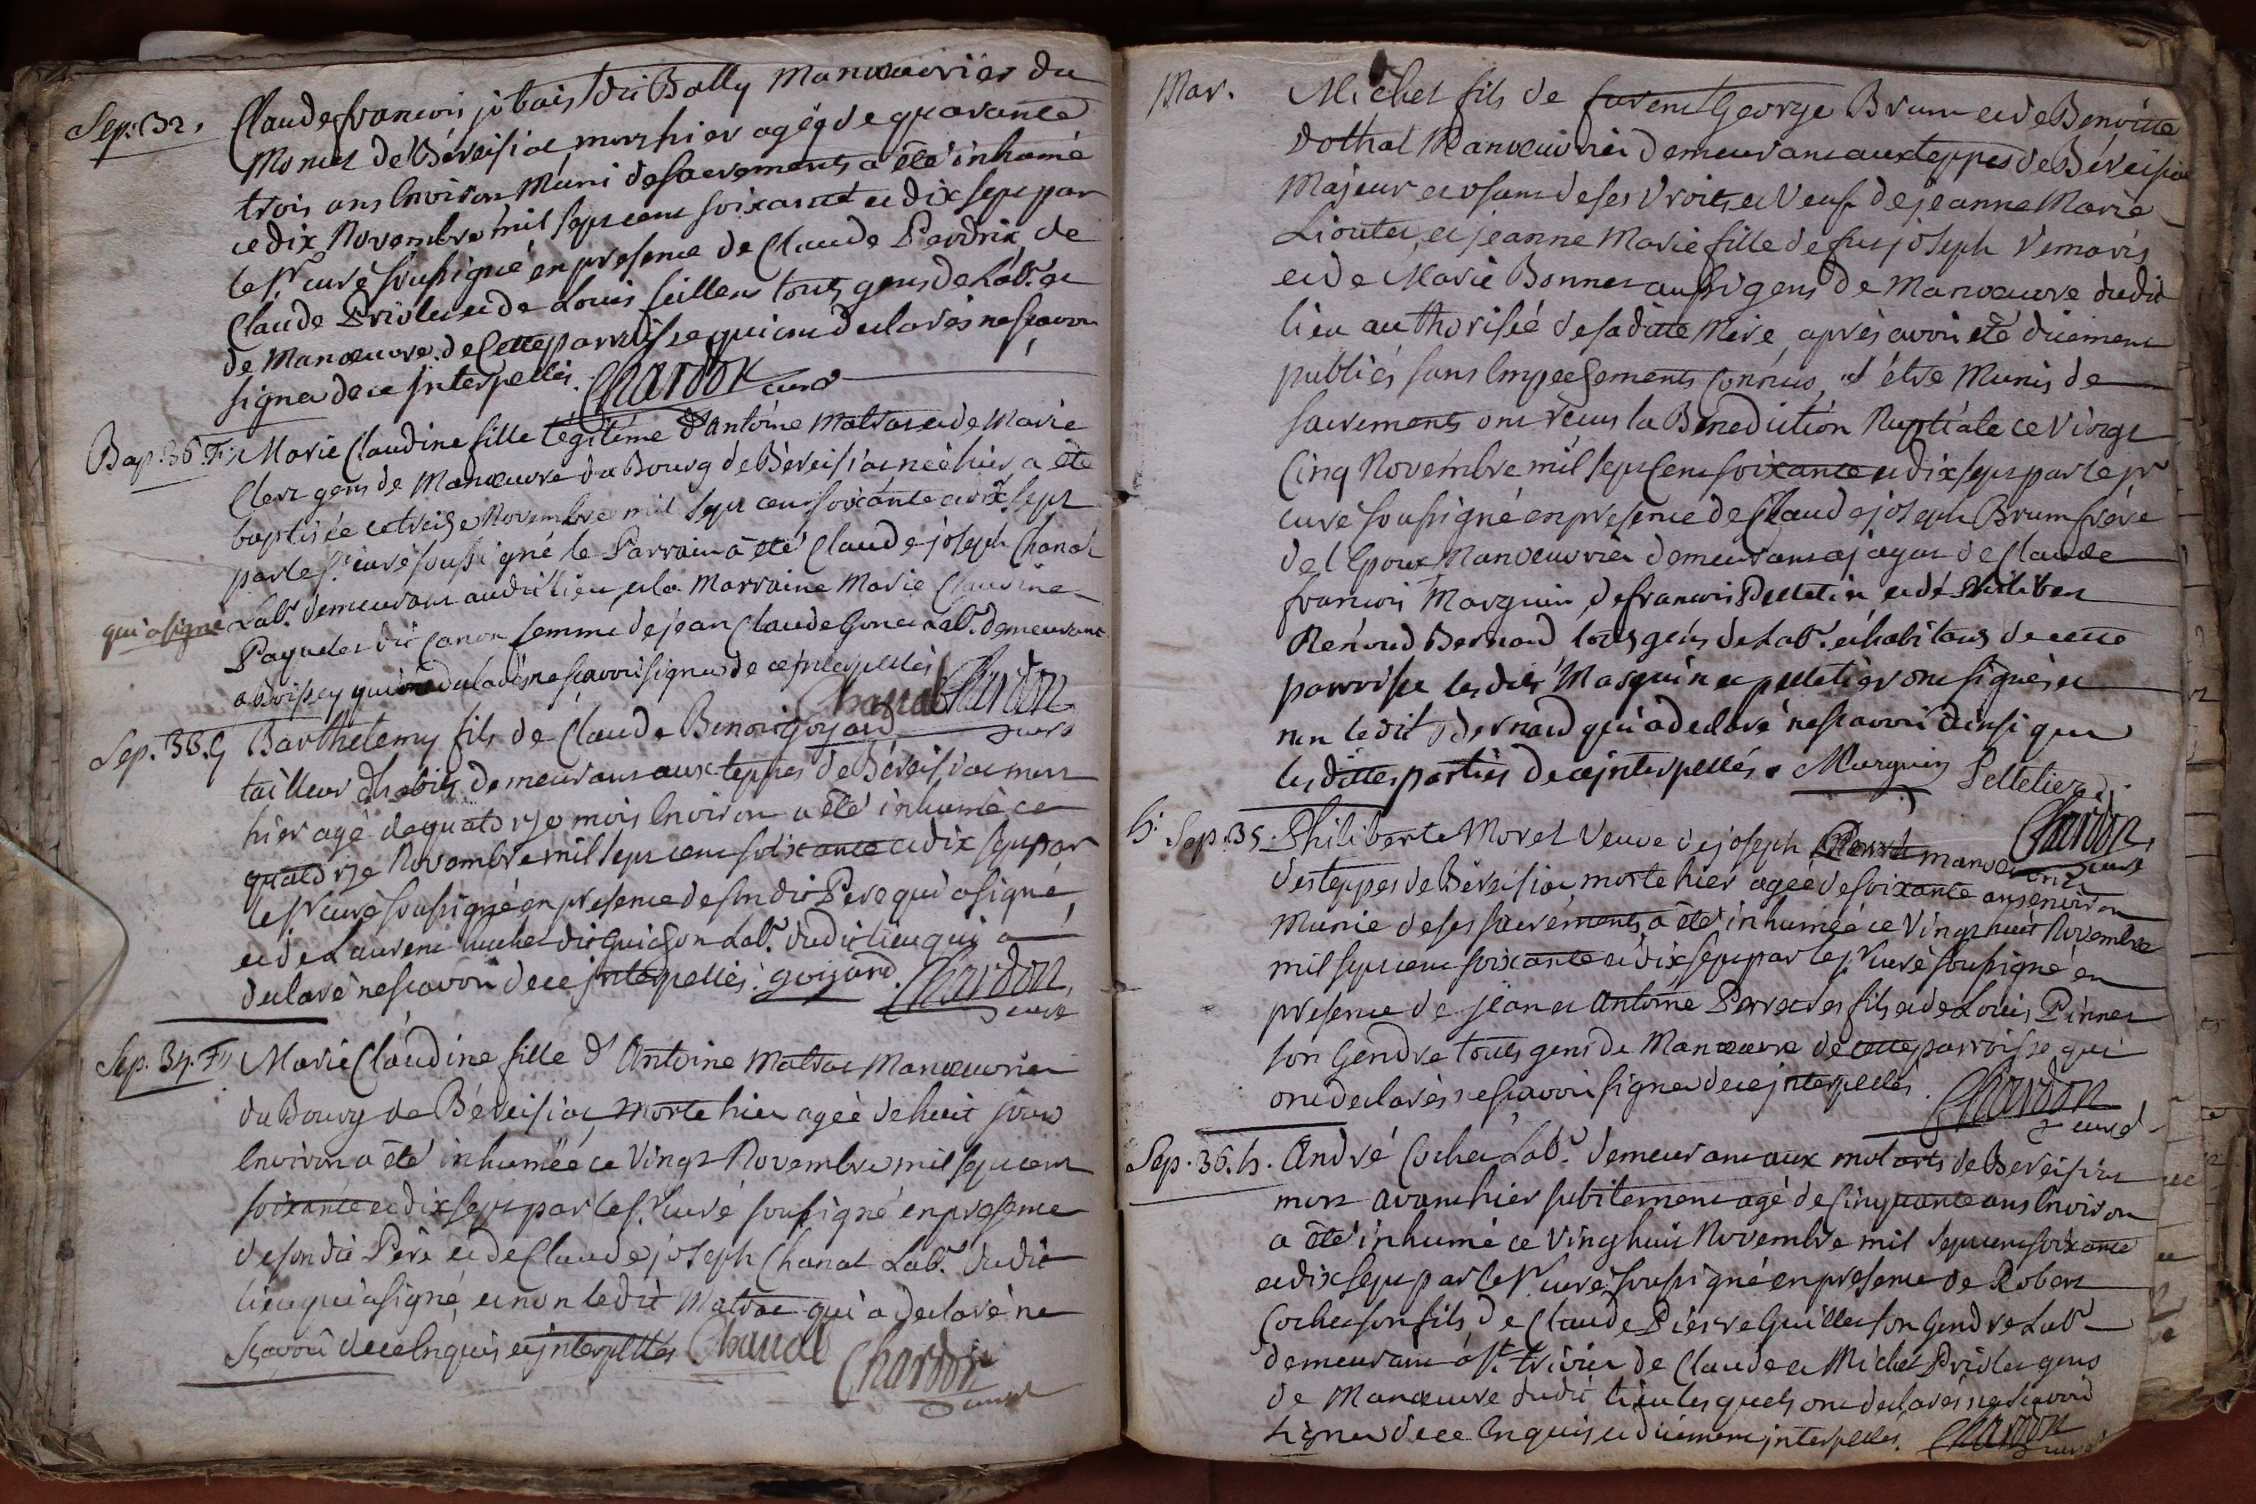 Sep. 32. Claude françois jobais dit Bally Manoeuvrier du
Monet de Béreisiat mort hier agé de quarante
trois ans Environ Muni de sacrements a êté inhumé
ce dix Novembre mil sept cent soixante et dix sept par
le Sr curé soussigné en presence de Claude Perdrix, de
Claude Privlet et de Louis feillens tous gens de Lab.r et
de Manoeuvre de Cette parroisse qui ont declarés ne scavoir
signer de ce jnterpellés. Chardon curé
Bap. 36. F. Marie Claudine fille légitime d'Antoine Matrat et de Marie
Clerc gens de Manoeuvre du Bourg de Béreisiat née hier a êté
baptisée ce treize Novembre mil sept cent soixante et dix sept
par le Sr curé soussigné le Parrain a êté Claude joseph Chanal
qui a signé
Lab.r demeurant audit lieu, et la Marraine Marie Claudine
Paquelet dit Canon femme de jean Claude Gonet Lab.r demeurant
a Boissey qui a declaré ne scavoir signer de ce jnterpellés
Chanal Chardon curé
Sep. 33. G Barthelemy fils de Claude Benoit Goyard
tailleur d'habits demeurant aux teppes de Béreisiat mort
hier agé de quatorze mois Environ a êté inhumé ce
quatorze Novembre mil sept cent soixante et dix sept par
le Sr curé soussigné en presence de son dit Pere qui a signé,
et de Laurent luchet dit Guichon Lab.r dudit lieu qui a
declaré ne scavoir de ce jnterpellés. goyard. Chardon
curé
Sep. 34. F. Marie Claudine fille d'Antoine Matrat Manoeuvrier
du Bourg de Béreisiat, Morte hier agée de huit jours
Environ a êté inhumée ce Vingt Novembre mil sept cent
soixante et dix sept par le Sr. curé soussigné en presence
de son dit Pere et de Claude joseph Chanal Lab.r dudit
lieu qui a signé, et non ledit Matrat qui a declaré ne
scavoir de ce Enquis et jnterpellés Chanal
Chardon
curé
Mar. Michel fils de furent George Brun et de Benoite
dothal Manoeuvrier demeurant aux teppes de Béreisiat
Majeur et usant de ses droits et Veuf de jeanne Marie
Lioutet, et jeanne Marie fille de fut joseph demaris
et de Marie Bonnet aussi gens de Manoeuvre dudit
lieu authorisée de sa ditte Mere, après avoir êté duement
publiés sans Empechements connus, et être Munis de
sacrements ont recus la Benediction Nuptiale ce Vingt
Cinq Novembre mil sept Cent soixante et dix sept par le Sr
curé soussigné en presence de Claude joseph Brun frere
de l'Epoux Manoeuvrier demeurant a jayat de Claude
francois Marguin, de francois Pelletier et de Philibert
Renoud Bernard tous gens de Lab.r et habitans de cette
parroisse lesdits Marguin et pelletier ont signés et
non ledit Bernard qui a declaré ne scavoir ainsi que
les dittes parties de ce jnterpellés. Marguin Pelletier
Chardon
curé
h. Sep. 35. Philiberte Morel Veuve de joseph Perret manoeuvrier
des teppes de Béreisiat morte hier agée de soixante ans environ
Munie de ses sacrements a êté inhumée ce Vingt huit Novembre
mil sept cent soixante et dix sept par le Sr curé soussigné en
presence de jean et Antoine Perret ses fils et de Louis Pinnet
son Gendre tous gens de Manoeuvre de cette parroisse qui
ont declarés ne scavoir signer de ce jnterpellés. Chardon
curé
Sep. 36. h. André Cochet Lab.r demeurant aux molards de Béreisiat
mort avant hier subitement agé de Cinquante ans Environ
a êté inhumé ce Vingt huit Novembre mil sept cent soixante
et dix sept par le Sr curé soussigné en presence de Robert
Cochet son fils de Claude Pierre Guillet son Gendre Lab.r
demeurant a St. trivier de Claude et Michel Privlet gens
de Manoeuvre dudit lieu lesquels ont declarés ne scavoir
signer de ce Enquis et duement jnterpellés. Chardon
curé